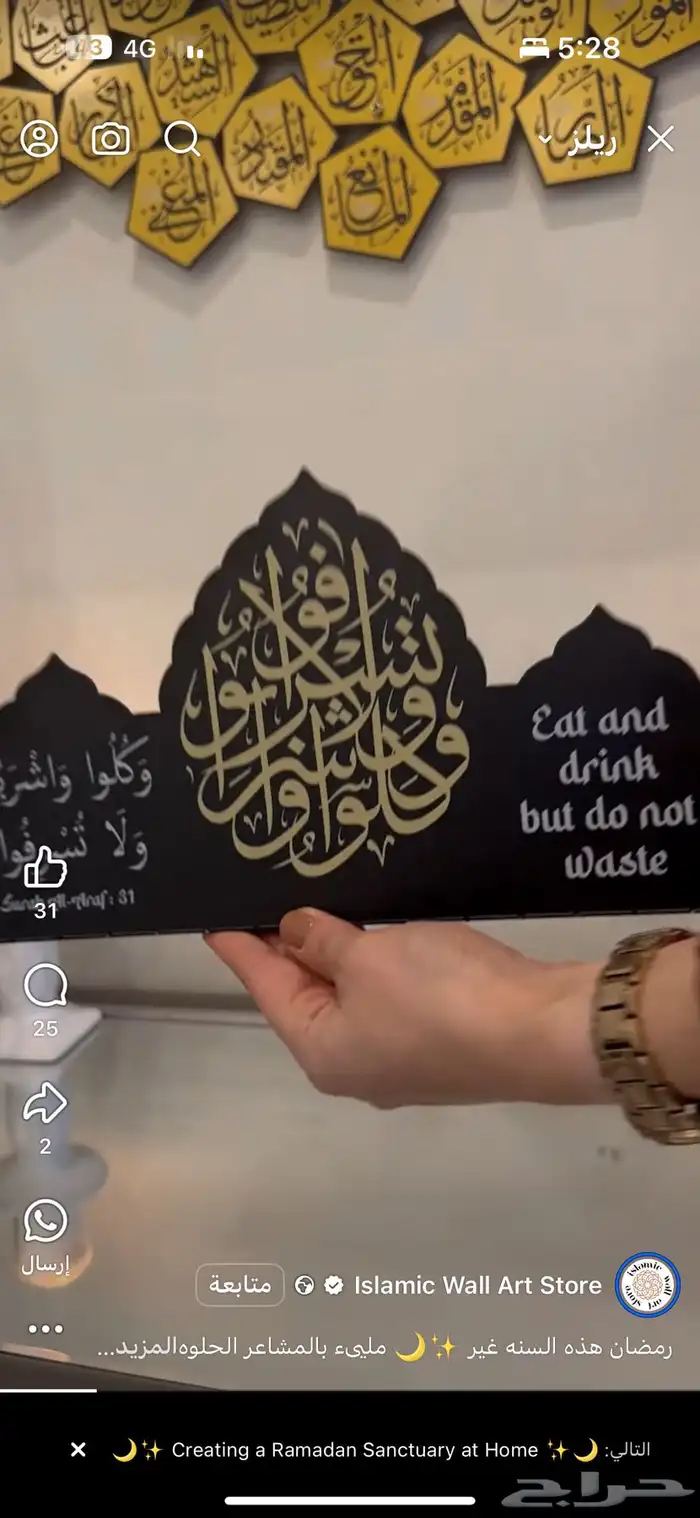 43
4G
5:28
ريلز
الحق
المقدم
المانع
المغني
وكلوا واشربوا ولا تسرفوا
وَكُلُوا وَاشْرَ
وَلَا تُسْرِفُوا
: 31
Eat and
drink
but do not
waste
31
25
2
إرسال
Islamic Wall Art Store
متابعة
رمضان هذه السنه غير ✨🌙 مليىء بالمشاعر الحلوه...المزيد
التالي: 🌙✨ Creating a Ramadan Sanctuary at Home ✨🌙
حراج